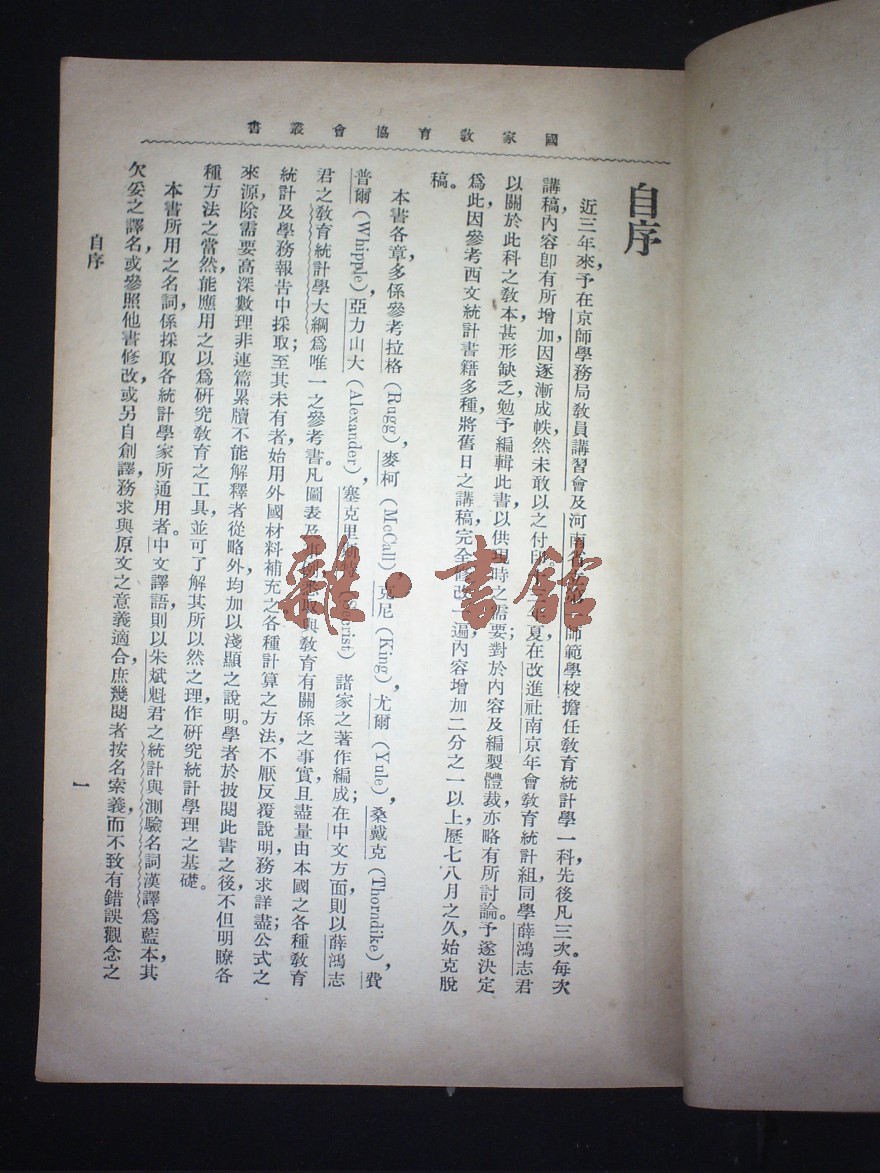 國家教育協會叢書
自序
近三年來，予在京師學務局教員講習會及河南省第一師範學校擔任教育統計學一科，先後凡三次。每次
講稿內容卽有所增加，因逐漸成帙，然未敢以之付印。年夏在改進社南京年會教育統計組，同學薛鴻志君
以關於此科之教本甚形缺乏，勉予編輯此書，以供現時之需要；對於內容及編製體裁，亦略有所討論。予遂決定
爲此，因參考西文統計書籍多種，將舊日之講稿，完全修改一遍，內容增加二分之一以上，歷七八月之久，始克脫
稿。
本書各章，多係參考拉格 (Rugg)，麥柯 (McCall)，克尼 (King)，尤爾 (Yule)，桑戴克 (Thorndike)，費
普爾 (Whipple)，亞力山大 (Alexander)，塞克里 諸家之著作編成；在中文方面，則以薛鴻志
君之教育統計學大綱爲唯一之參考書。凡圖表及事例悉取與教育有關係之事實，且盡量由本國之各種教育
統計及學務報告中採取；至其未有者，始用外國材料補充之。各種計算之方法，不厭反覆說明，務求詳盡；公式之
來源，除需要高深數理非連篇累牘不能解釋者從略外，均加以淺顯之說明。學者於披閱此書之後，不但明瞭各
種方法之當然，能應用之以爲研究教育之工具，並可了解其所以然之理，作研究統計學理之基礎。
本書所用之名詞，係採取各統計學家所通用者。中文譯語，則以朱斌魁君之統計與測驗名詞漢譯爲藍本，其
欠妥之譯名，或參照他書修改，或另自創譯，務求與原文之意義適合，庶幾閱者按名索義，而不致有錯誤觀念之
自序
一
雜·書館